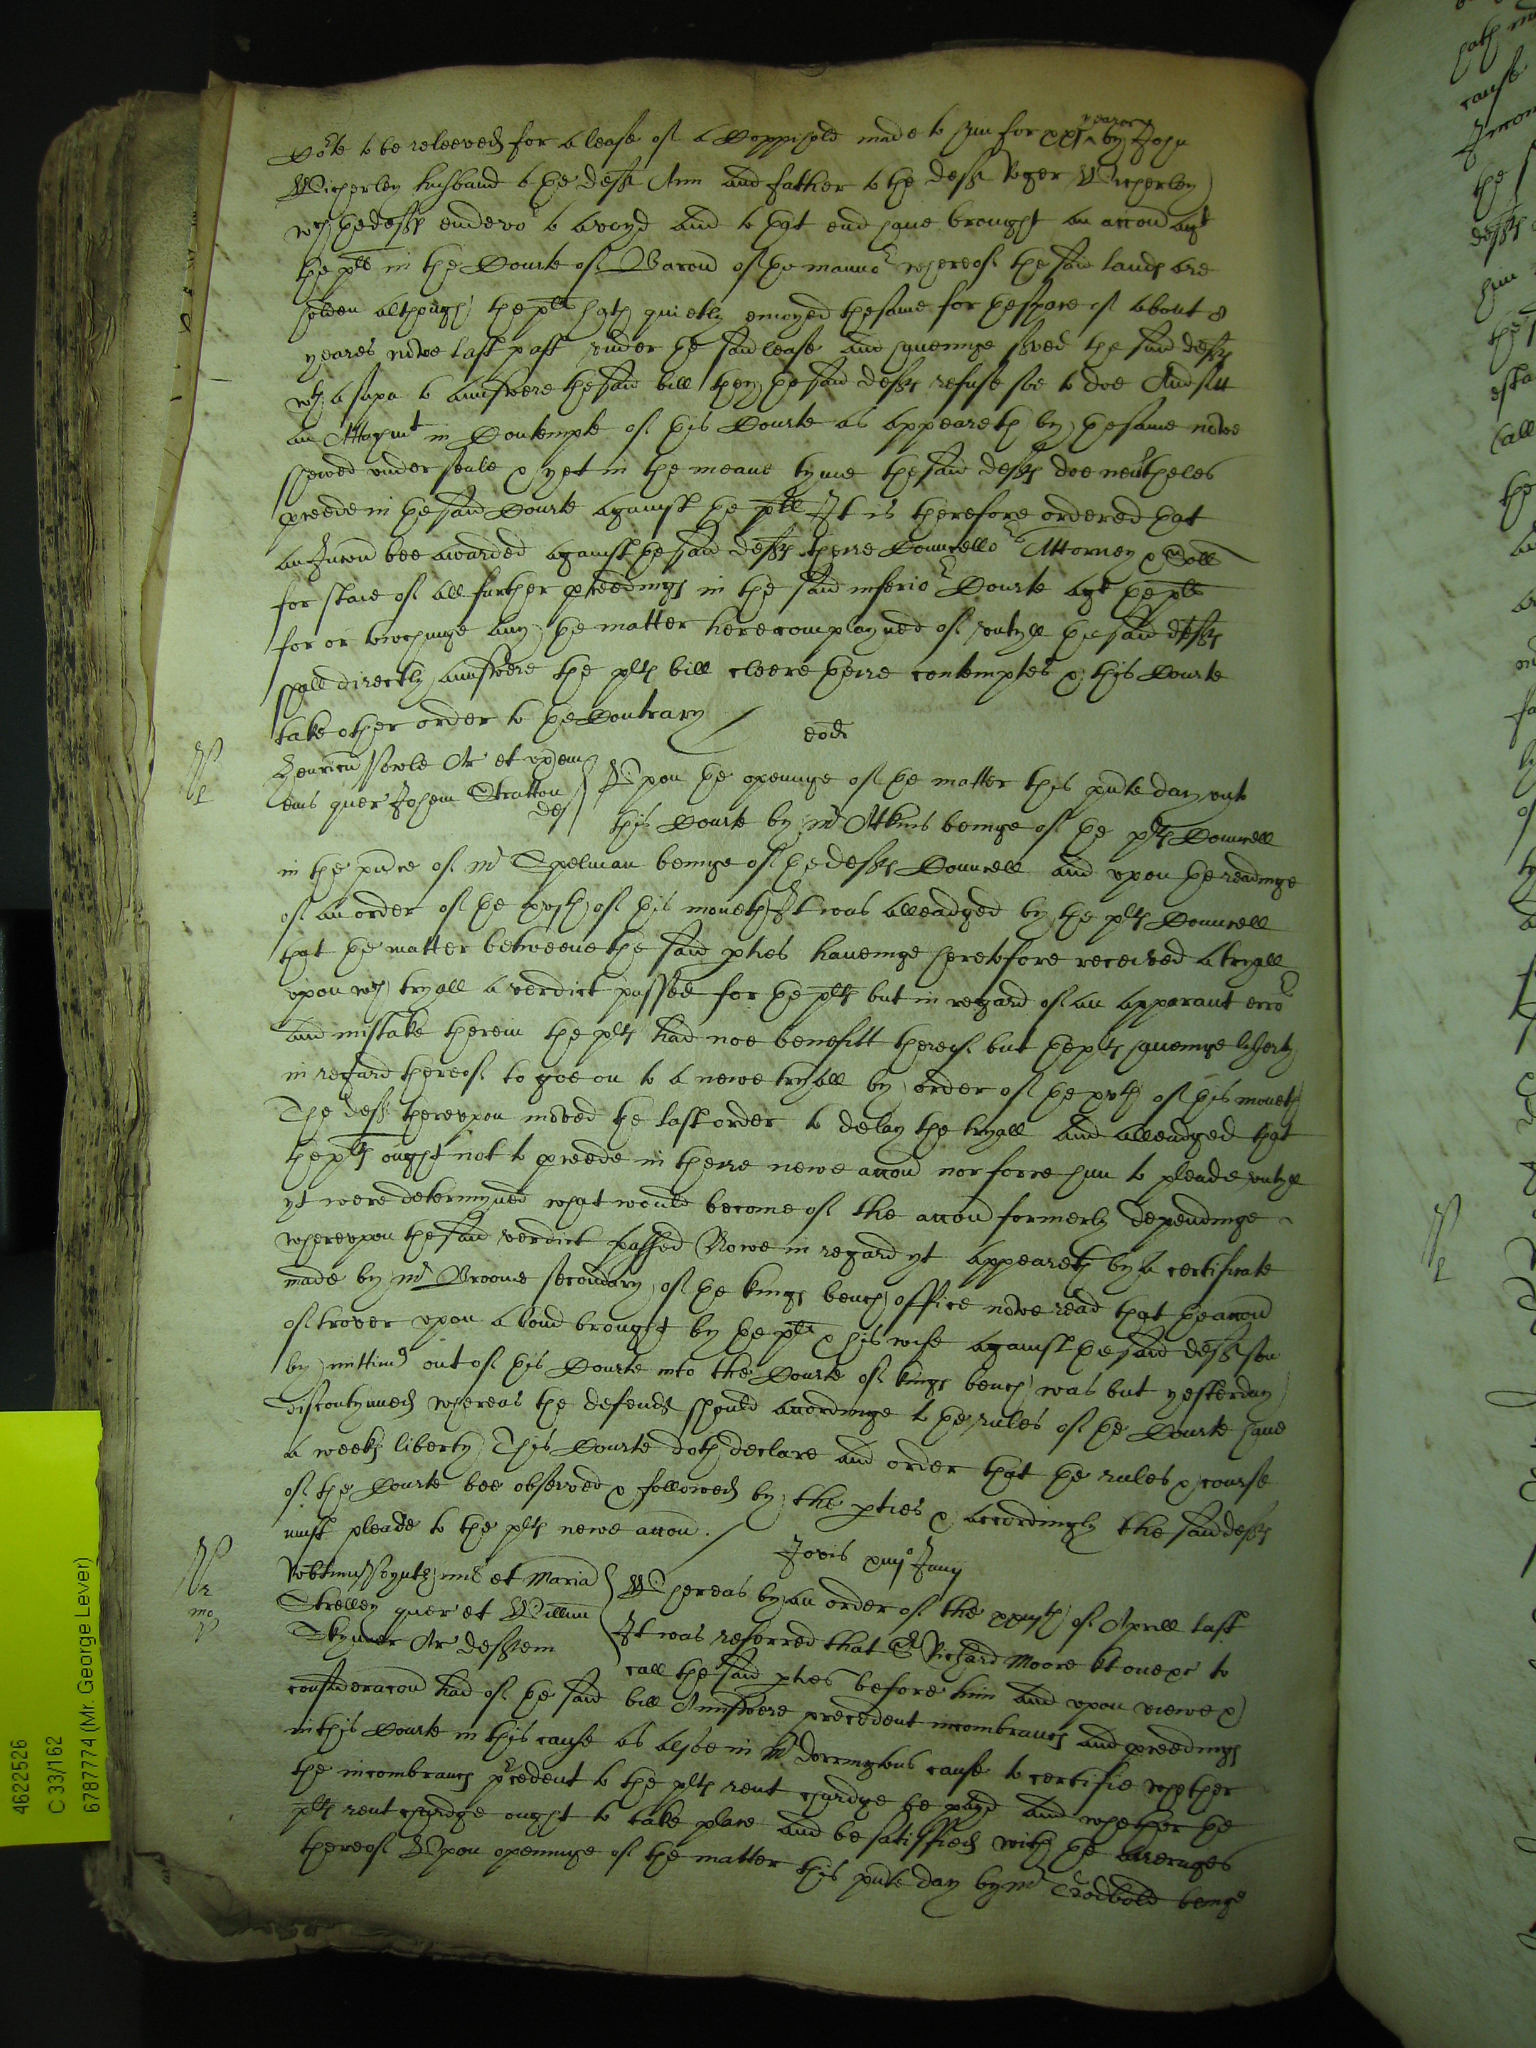 Cor̃te to be releeved for a lease of a Coppihold made to him for xxj yeares by John
Wicherley husband to the def̃t Ann and father to the def̃t Roger Wicherley
wch the deft̃s endevor to avoyd and to that end have brought an acc̃on agt
the plt̃ in the Courte of Baron of the mannor whereof the said lands are
holden although the plt̃ hath quietly enioyed the same for the space of about 8
yeares nowe last past under the said lease and haveinge served the said deft̃s
wth a sup̃a to aunswere the said bill they the said deft̃s refuse soe to doe And sitt
an Attachmt in Contempte of this Courte as appeareth by the same nowe
shewed under seale & yet in the meane tyme the said deft̃s doe nev̄theles
p̄ceede in the said Courte against the plt̃ It is therefore ordered that
an Iniunc̃on bee awarded against the said deft̃s theire Councellors Attorney & Soll̄
for staie of all further p̄ceedings in the said inferior Courte agt the plt̃
for or towchinge any the matter here complayned of untyll the said deft̃s
shall directly aunswere the plts bill cleere theire contemptes & this Courte
take other order to the Contrary
eod̃
Henricu᷈ Ar et ux̄em
eius quer Joh̄em Stratton
def
Upon the openinge of the matter this p̄nte day unto
this Courte by Mr Atkins beinge of the plts Councell
in the p̄nce of Mr Spelman beinge of the defts Councell and upon the readinge
of an order of the xvjth of this moneth It was alleadged by the plts Councell
that the matter betweene the said p̄ties haveinge heretofore received a tryall
upon wch tryall a verdict passed for the plts but in regard of an apparant error
and mistake therein the plts had noe benefitt thereof but the plts haveinge liberty
in regard thereof to goe on to a newe tryall by order of the xvth of this moneth
The deft thereupon moved the last order to delay the tryall and alleadged that
the plts ought not to p̄ceede in theire newe acc̃on nor force him to pleade untyll
yt were determyned what would become of the acc̃on formerly dependinge
whereupon the said verdict passed Nowe in regard yt appeareth by a certificate
made by Mr Broome secondary of the kings bench office nowe read that the acc̃on
of trover upon a bond brought by the plt & his wife against the said deft sent
by mittimus out of this Courte into the Courte of kings bench was but yesterday
discontynued whereas the defend̄t should accordinge to the rules of the Courte have
a weeks liberty This Courte doth declare and order that the rules & course
of the Courte bee observed & followed by the p̄ties & accordingly the said defts
must pleade to the plts newe acc̃on.
Jovis Junij
Rob̄tum Poyntz mil̄ et Maria
Strelley quer et Willm̄
Skynner Ar defftem
Whereas by an order of the of Aprill last
It was referred that Sr Richard Moore kt one &c to
call the said p̄ties before him and upon viewe &
considerac̃on had of the said bill Aunswere precedent incombrances and p̄ceedings
in this Courte in this cause as alsoe in Mr Dorringtons cause to certifie whether
the incombrances p̄cedent to the plts rent chardge be payd and whether the
plts rent chardge ought to take place and be satisffied with the arerages
thereof Upon openinge of the matter this p̄nte day by Mr Godbold beinge
4622526
C 33/162
6787774 (Mr. George Lever)